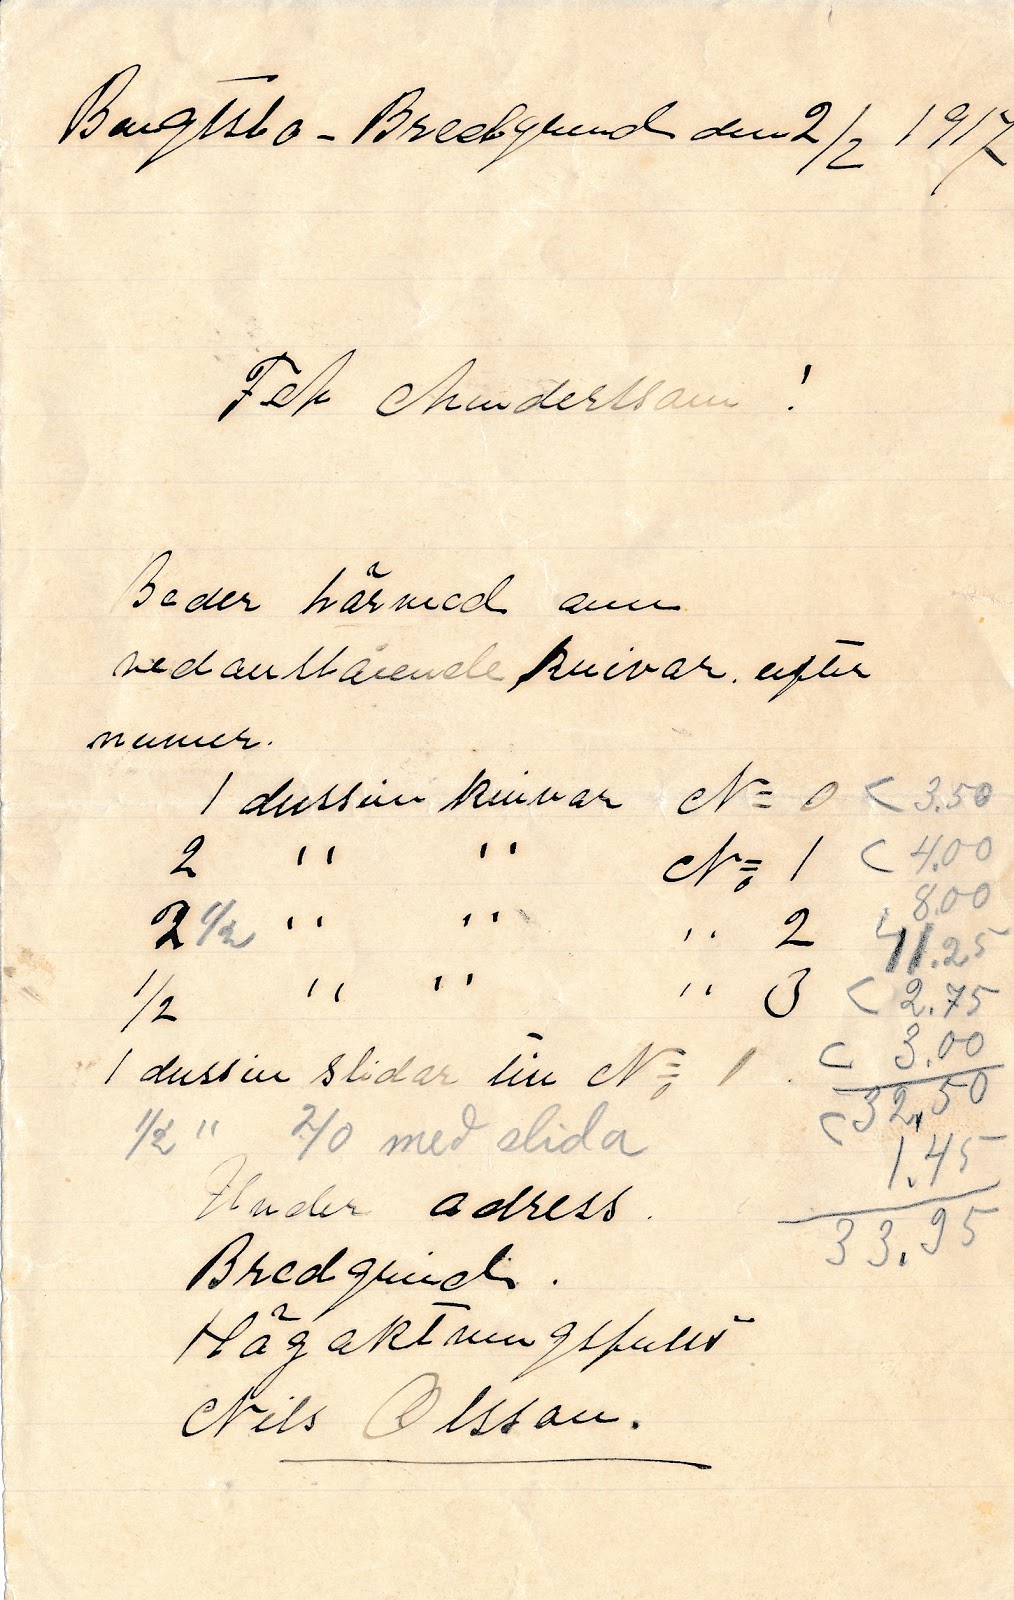 Bengtsbo - Bredgrund den 2/2 1917
Beder härmed om
nedanstående knivar. efter
numer.
1 dussin knivar N= 0 3.50
2 " " N= 1 4.00
8.00
2 1/2 " " " 2 11.25
1/2 " " " 3 2.75
1 dussin slidar till N= 1 . 3.00
32,50
1/2 " 2/0 med slida 1.45
33.95
Under adress.
Bredgrund.
Högaktningsfullt
Nils Olsson.